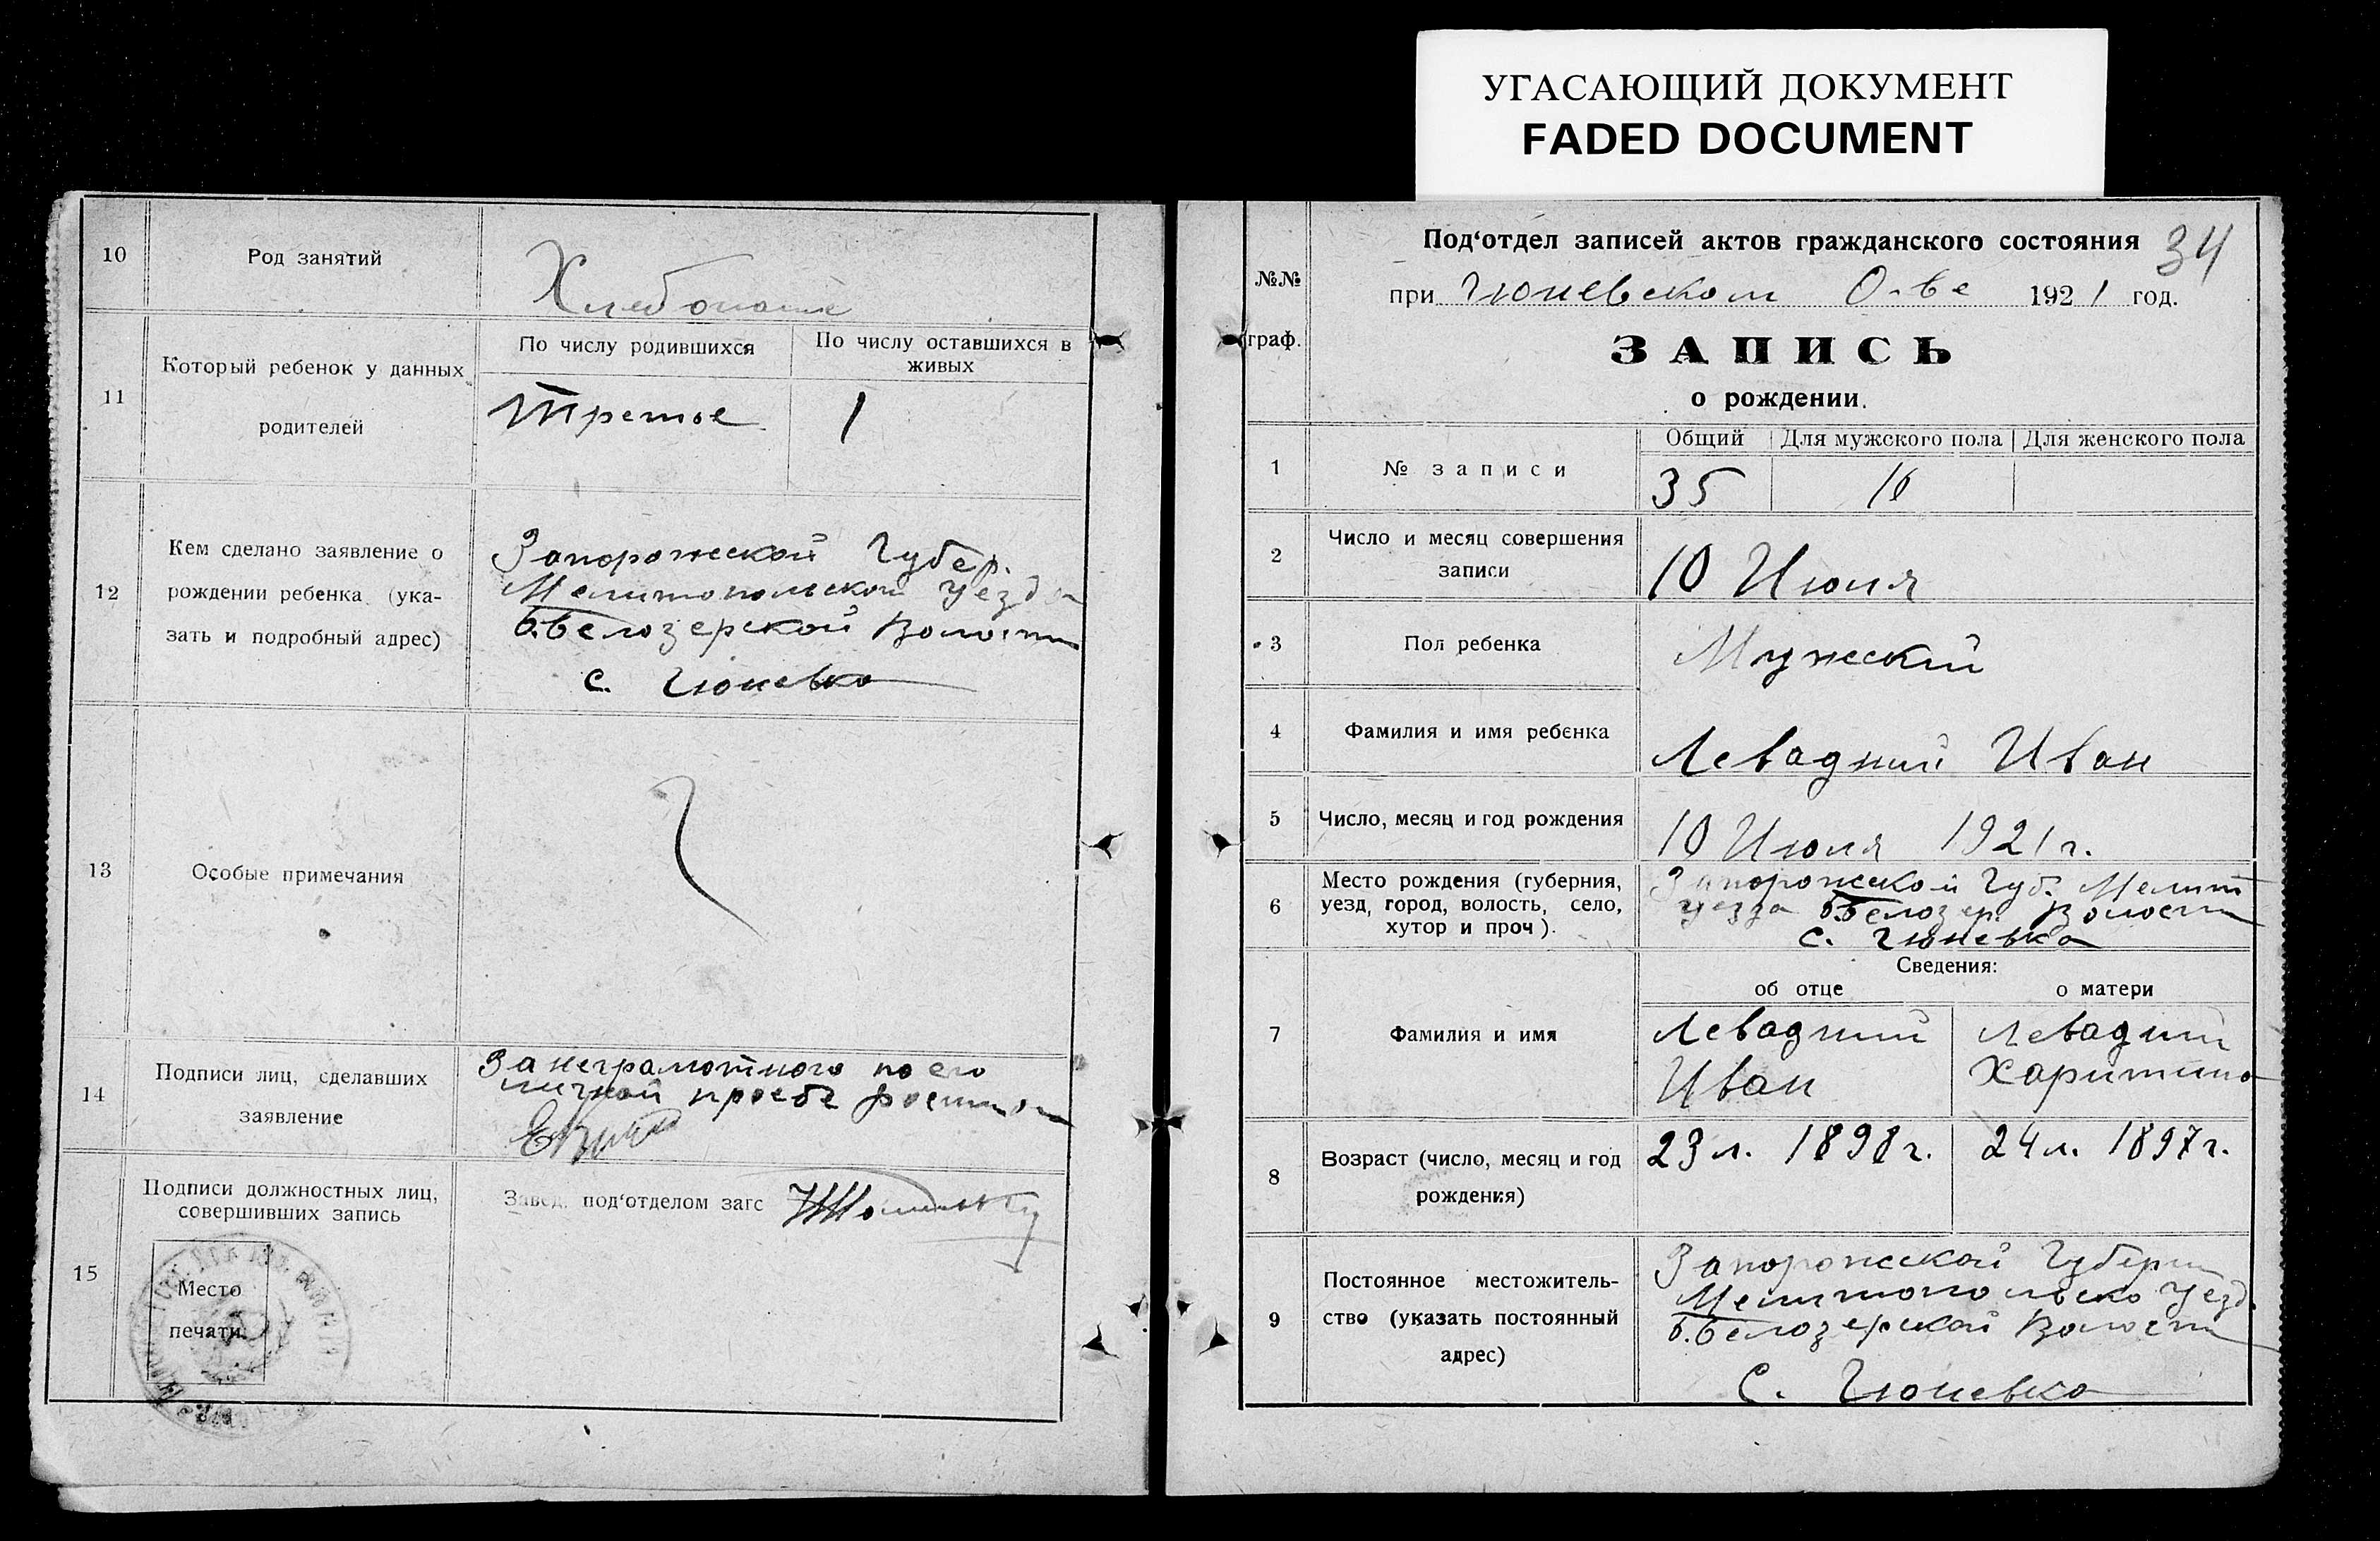 УГАСАЮЩИЙ ДОКУМЕНТ
FADED DOCUMENT
10
Род занятий
Хлебопаше
11
Который ребенок у данных
родителей
По числу родившихся
По числу оставшихся в
живых
Третье
1
12
Кем сделано заявление о
рождении ребенка (ука-
зать и подробный адрес)
Запорожской Губер.
Мелитопольской Уезда
Б.Белозерской Волости
с. Гюневка
13
Особые примечания
14
Подписи лиц, сделавших
заявление
За неграмотного по его
личной прозбе
15
Подписи должностных лиц,
совершивших запись
Завед. под‘отделом загс
Место
печати.
№№
граф.
Под‘отдел записей актов гражданского состояния
34
при Гюневском О-ве 1921 год.
ЗАПИСЬ
о рождении.
1
№ записи
Общий
Для мужского пола
Для женского пола
35
16
2
Число и месяц совершения
записи
10 Июля
3
Пол ребенка
Мужеский
4
Фамилия и имя ребенка
Левадний Иван
5
Число, месяц и год рождения
10 Июля 1921 г.
6
Место рождения (губерния,
уезд, город, волость, село,
хутор и проч).
Запорожской Губ. Мелит
уезда Б.Белозер. Волости
с. Гюневка
Сведения:
об отце
о матери
7
Фамилия и имя
Левадний
Иван
Левадний
Харитина
8
Возраст (число, месяц и год
рождения)
23 л. 1898 г.
24 л. 1897 г.
9
Постоянное местожитель-
ство (указать постоянный
адрес)
Запорожской Губерни
Мелитопольско Уезд.
Б.Белозерской Волости
С. Гюневка